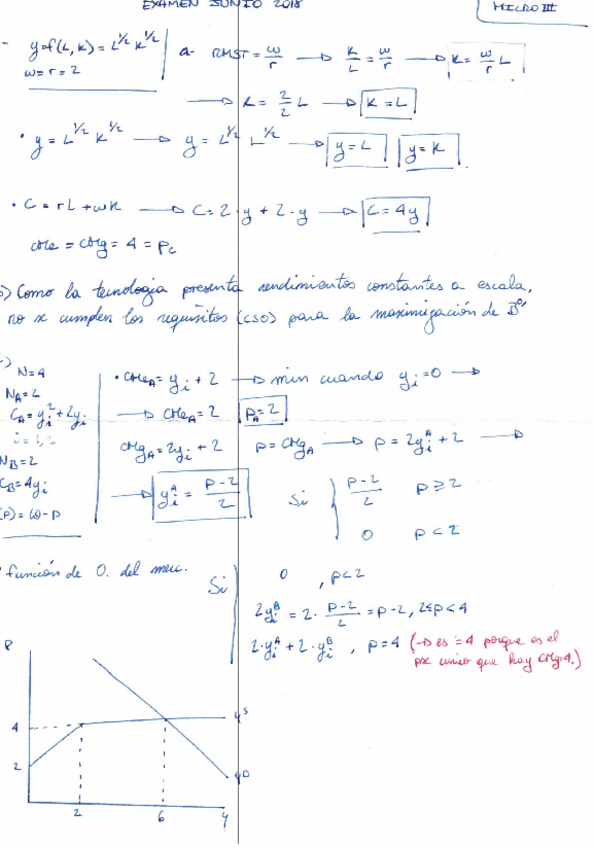 EXAMEN JUNIO 2018
MICRO III
y=f(L,K)=L^1/2 K^1/2
w=r=2
a- RMST = w/r → K/L = w/r → K = w/r L
→ K = 2/2 L → K=L
• y = L^1/2 K^1/2 → y = L^1/2 L^1/2 → y=L y=K
• C = rL + wK → C = 2·y + 2·y → C=4y
CMe = CMg = 4 = Pc
b) Como la tecnología presenta rendimientos constantes a escala,
no se cumplen los requisitos (CSO) para la maximización de Bº
c)
N=4
N_A=2
C_A=y_i^2+2y_i
i=1,2
N_B=2
C_B=4y_i
(P)=10-P
• CMe_A = y_i + 2 → min cuando y_i=0 →
→ CMe_A=2 P_A=2
CMg_A=2y_i+2 P=CMg_A → P=2y_i^A+2 →
→ y_i^A = P-2/2
Si
P-2/2 P≥2
0 P<2
función de O. del merc.
Si
0 , P<2
2y_i^B = 2· P-2/2 = P-2, 2≤P<4
2·y_i^A + 2·y_i^B , P=4 (→ es =4 porque es el
px único que hay CMg=4.)
P
4
2
y^S
y^D
2
6
y